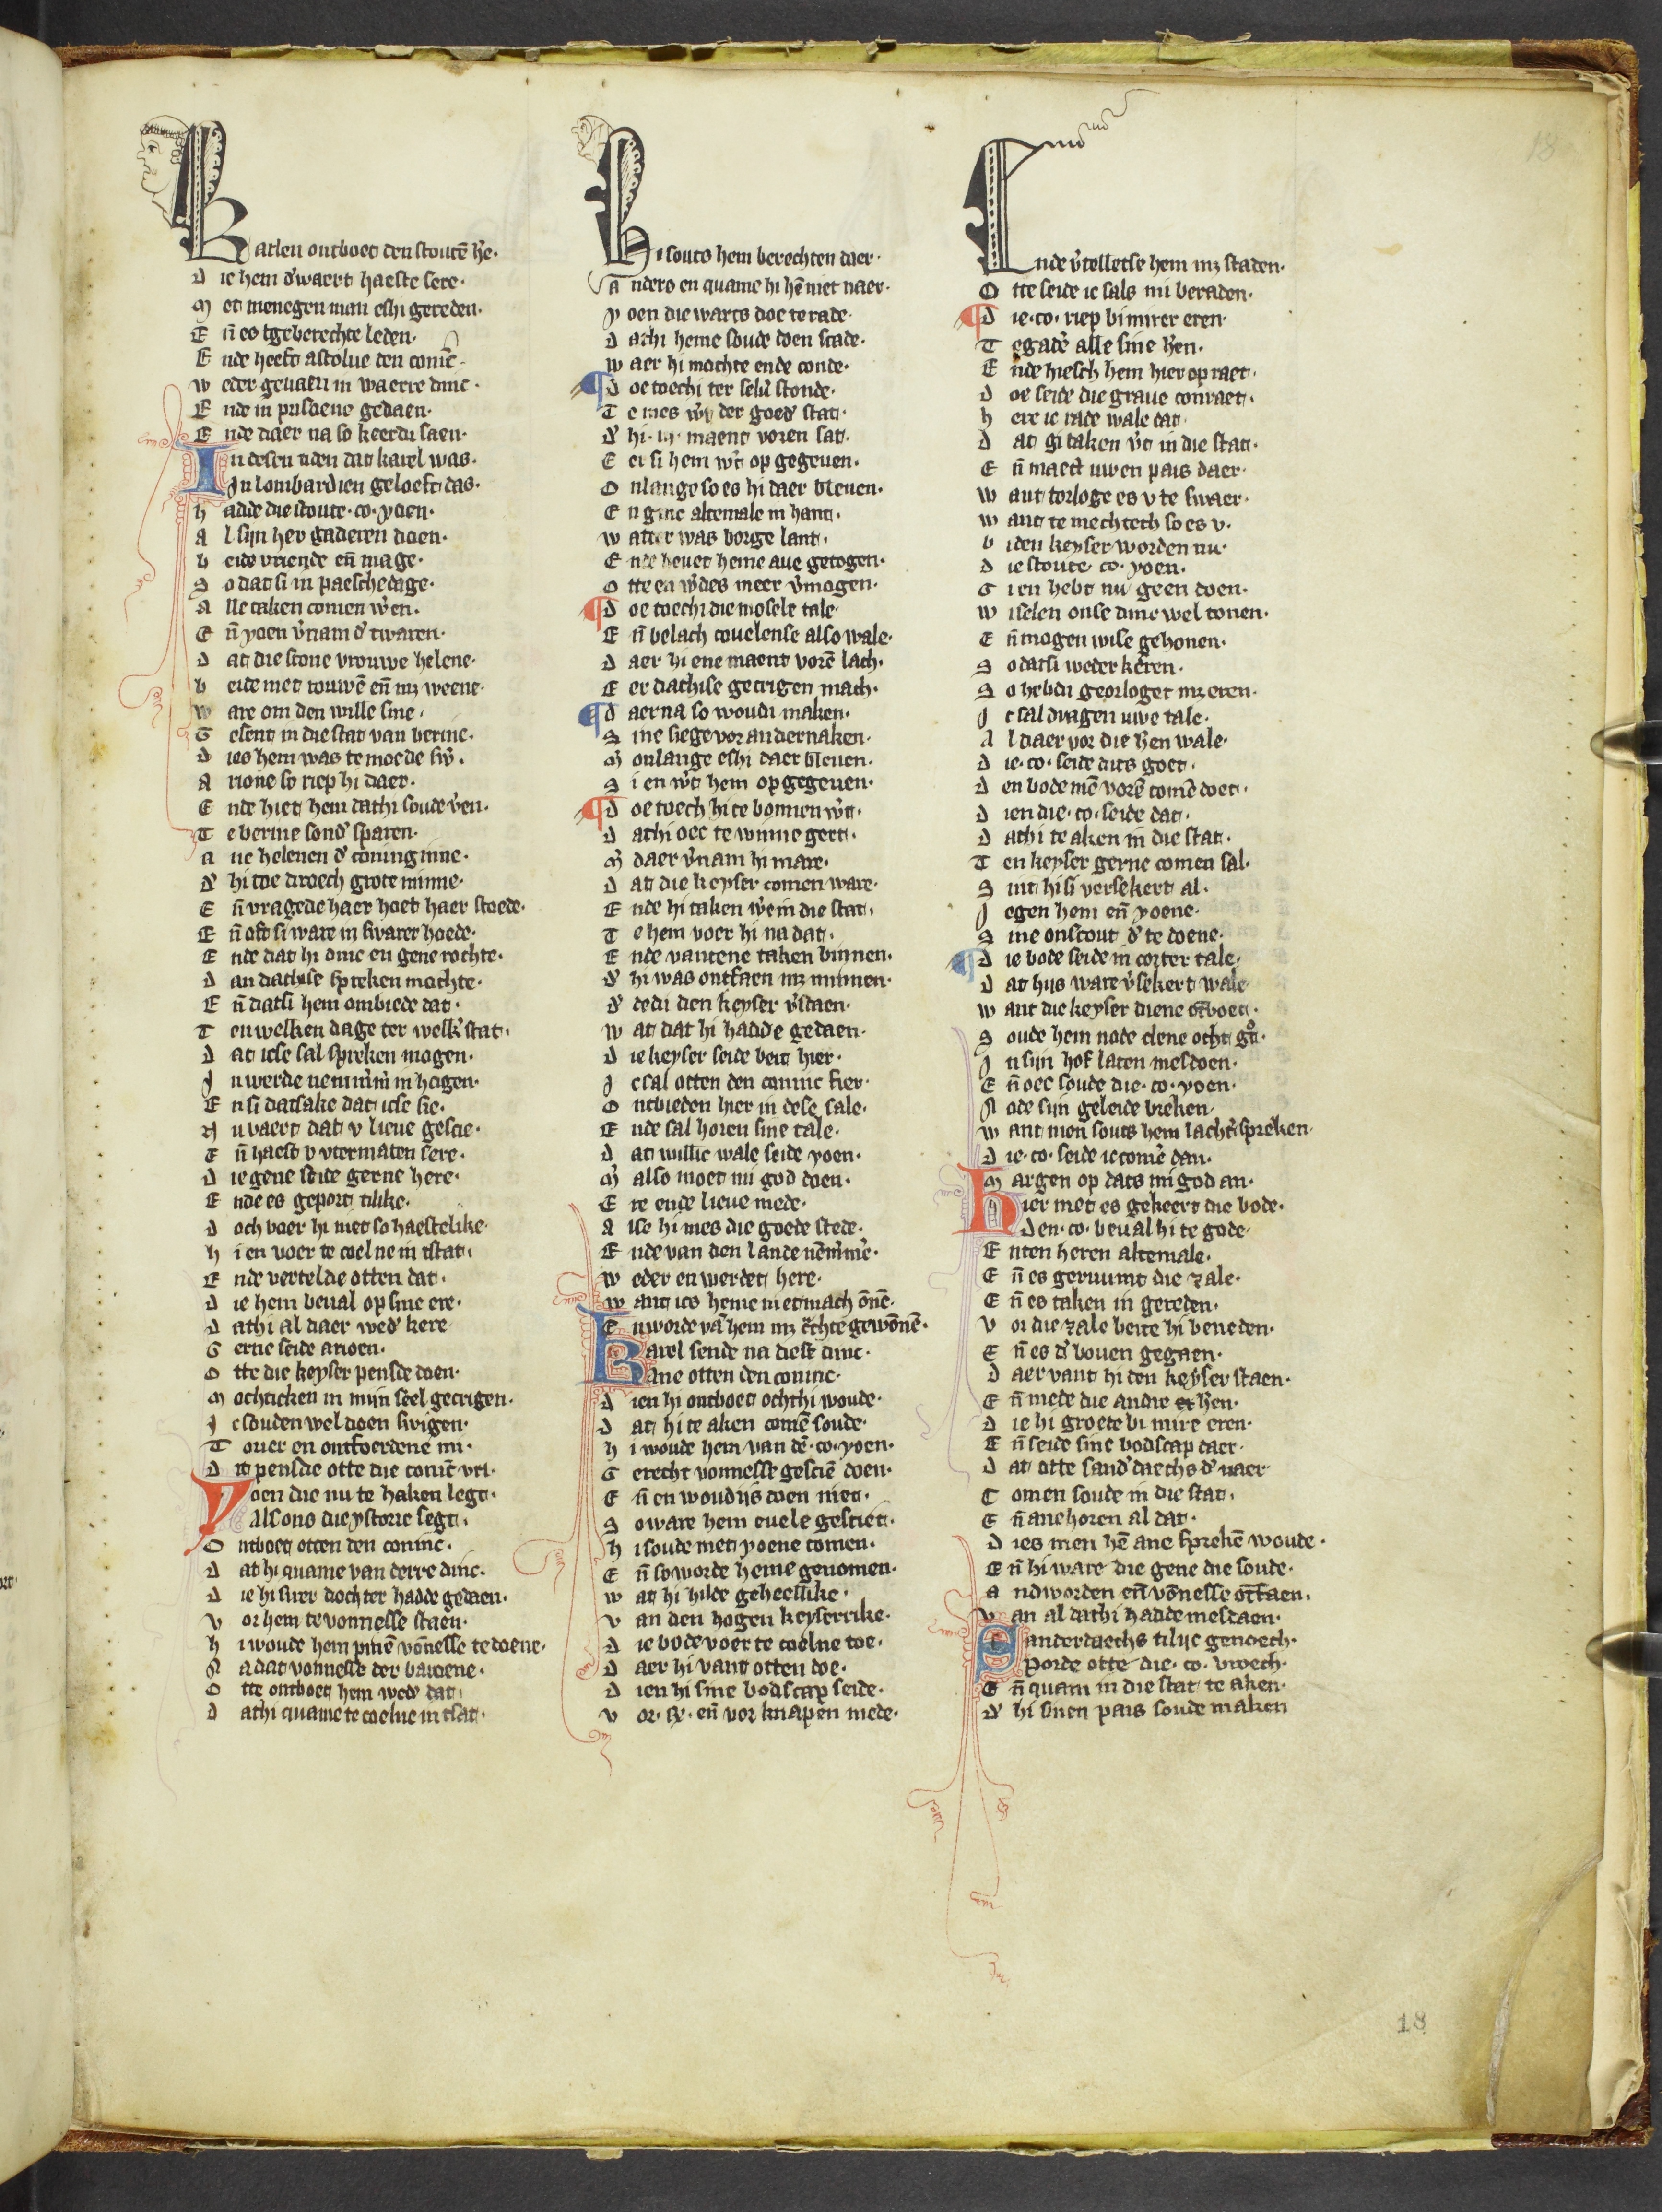 18
Karleu ontboet den stoutē h'e.
Die hem d'waert haeste sere.
Met menegen man eshi gereden.
Eñ es tgeberechte leden.
Ende heeft astolue den coninc
Weder geuaen in waerre dinc.
Ende in prisoene gedaen.
Ende daer na so keerdi saen.
In desen tiden dat karel was.
In lombardien geloeft das.
Hadde die stoute .co. yoen.
Al sijn her gaderen doen.
Beide vriende eñ mage.
So dat si in paeschedage.
Alle taken comen w'en.
Eñ yoen v'nam d' twaren.
Dat die scone vrouwe helene.
Beide met rouwē eñ mz weene.
Ware om den wille sine.
Gesent in die stat van berine.
Dies hem was te moede sw'.
Arione so riep hi daer.
Ende hiet hem dathi soude v'en.
Te berine sond' sparen.
Ane helenen d' coninginne.
D' hi toe droech grote minne.
Eñ vragede haer hoet haer stoede.
Eñ oft si ware in swarer hoede.
Ende dat hi dinc en gene rochte.
Dan dathise spreken mochte.
Eñ datsi hem ombiede dat.
Ten welken dage ter welk' stat.
Dat icse sal spreken mogen.
In werde nemm'm' in hogen.
En si datsake dat icse sie.
Nu vaert dat v lieue gescie.
Eñ haest v vtermaten sere.
Die gene seide gerne here.
Ende es geport tilike.
Doch voer hi niet so haestelike.
Hi en voer te coelne in tstat.
Ende vertelde otten dat.
Die hem beual op sine ere.
Dathi al daer wed' kere
Gerne seide arioen.
Otte die keyser pensde doen.
Mochticken in mijn seel gecrigen.
Ic souden wel doen swigen.
Touer en ontfoerdene mi.
Dit pensde otte die coninc vri.
Yoen die nu te haken legt.
Als ons die ystorie segt.
Ontboet otten den coninc.
Dat hi quame van derre dinc.
Die hi sirer dochter hadde gedaen.
Vor hem te vonnesse staen.
Hi woude hem pinē vōnesse te doene.
Na dat vonnesse der baroene.
Otte ontboet hem wed' dat.
Dathi quame te coelne in tstat.
Hi souts hem berechten daer.
Anders en quame hi hē niet naer.
Yoen die warts doe te rade.
Dathi heme soude doen scade.
Waer hi mochte ende conde.
Doe toechi ter selu' stonde.
Te mes w' der goed' stat.
D' hi .iij. maent voren sat.
Eer si hem w't op gegeuen.
Onlange so es hi daer bleuen.
En ginc altemale in hant.
Watter was borge lant.
Ende heuet heme aue getogen.
Otte en w'des meer v'mogen.
Doe toechi die mosele tale.
Eñ belach couelense also wale.
Daer hi ene maent vorē lach.
Eer dathise gecrigen mach.
Daerna so woudi maken.
Sine siege vor andernaken.
M' onlange eshi daer bleuen.
Si en w't hem op gegeuen.
Doe toech hi te bonnen w't.
Dathi oec te winne gert.
M' daer v'nam hi mare.
Dat die keyser comen ware.
Ende hi taken w'e in die stat.
Te hem voer hi na dat.
Ende vantene taken binnen.
D' hi was ontfaen mz minnen.
D' dedi den keyser v'staen.
Wat dat hi hadde gedaen.
Die keyser seide beit hier.
Ic sal otten den coninc fier.
Ontbieden hier in dese sale.
Ende sal horen sine tale.
Dat willic wale seide yoen.
M' also moet mi god doen.
Ere ende lieue mede.
Alse hi mes die goede stede.
Ende van den lande nēm'm'e.
Weder en werdet here.
Want ics heme niet mach ōnē.
En worde vā hem mz c'chte gewōnē.
Karel sende na dese dinc.
Ane otten den coninc.
Dien hi ontboet ochthi woude.
Dat hi te aken comē soude.
Hi woude hem van dē .co. yoen.
Gerecht vonnesse gesciē doen.
Eñ en woudijs doen niet.
So ware hem euele gesciet.
Hi soude met yoene comen.
Eñ so worde heme genomen.
Wat hi hilde geheellike.
Van den hogen keyserrike.
Die bode voer te coelne toe.
Daer hi vant otten doe.
Dien hi sine bodscap seide.
Vor .ix. eñ vor knapen mede.
Ende v'telletse hem mz staden.
Otte seide ic sals mi beraden.
Die .co. riep bi mirer eren.
Tegad'e alle sine h'en.
Ende hiesch hem hier op raet.
Doe seide die graue conraet.
Here ic rade wale dat.
Dat gi taken v't in die stat.
Eñ maect uwen pais daer.
Want torloge es v te swaer.
Want te mechtech so es v.
Biden keyser worden nu.
Die stoute .co. yoen.
Gien hebt nu geen doen.
Wiselen onse dinc wel tonen.
Eñ mogen wise gehonen.
So datsi weder keren.
So hebdi georloget mz eren.
Ic sal dragen uwe tale.
Al daer vor die h'en wale.
Die .co. seide dits goet.
Den bode mē vorē comē doet.
Dien die .co. seide dat.
Dathi te aken in die stat.
Ten keyser gerne comen sal.
Sint hi si versekert al.
Jegen hem eñ yoene.
Sine onscout d' te doene.
Die bode seide in corter tale.
Dat hijs ware v'sekert wale
Want die keyser diene ōtboet.
Soude hem node clene ocht gōt.
In sijn hof laten mesdoen.
Eñ oec soude die .co. yoen.
Node sijn geleide breken.
Want men souts hem lacht' spreken.
Die .co. seide ic comē dan.
Margen op dats mi god an.
Hier met es gekeert die bode.
Den .co. beual hi te gode.
Enten heren altemale.
Eñ es geruumt die zale.
Eñ es taken in gereden.
Vor die zale beite hi beneden.
Eñ es d' bouen gegaen.
Daer vant hi den keyser staen.
Eñ mede die andre h'en.
Die hi groete bi mire eren.
Eñ seide sine bodscap daer.
Dat otte sand'daechs d' naer
Comen soude in die stat.
Eñ ane horen al dat.
Dies men hē ane sprekē woude.
Eñ hi ware die gene die soude.
Andworden eñ vōnesse ōtfaen.
Van al dathi hadde mesdaen.
Sanderdaechs tilijc genoech.
Porde otte die .co. vroech.
Eñ quam in die stat te aken.
D' hi sinen pais soude maken
18